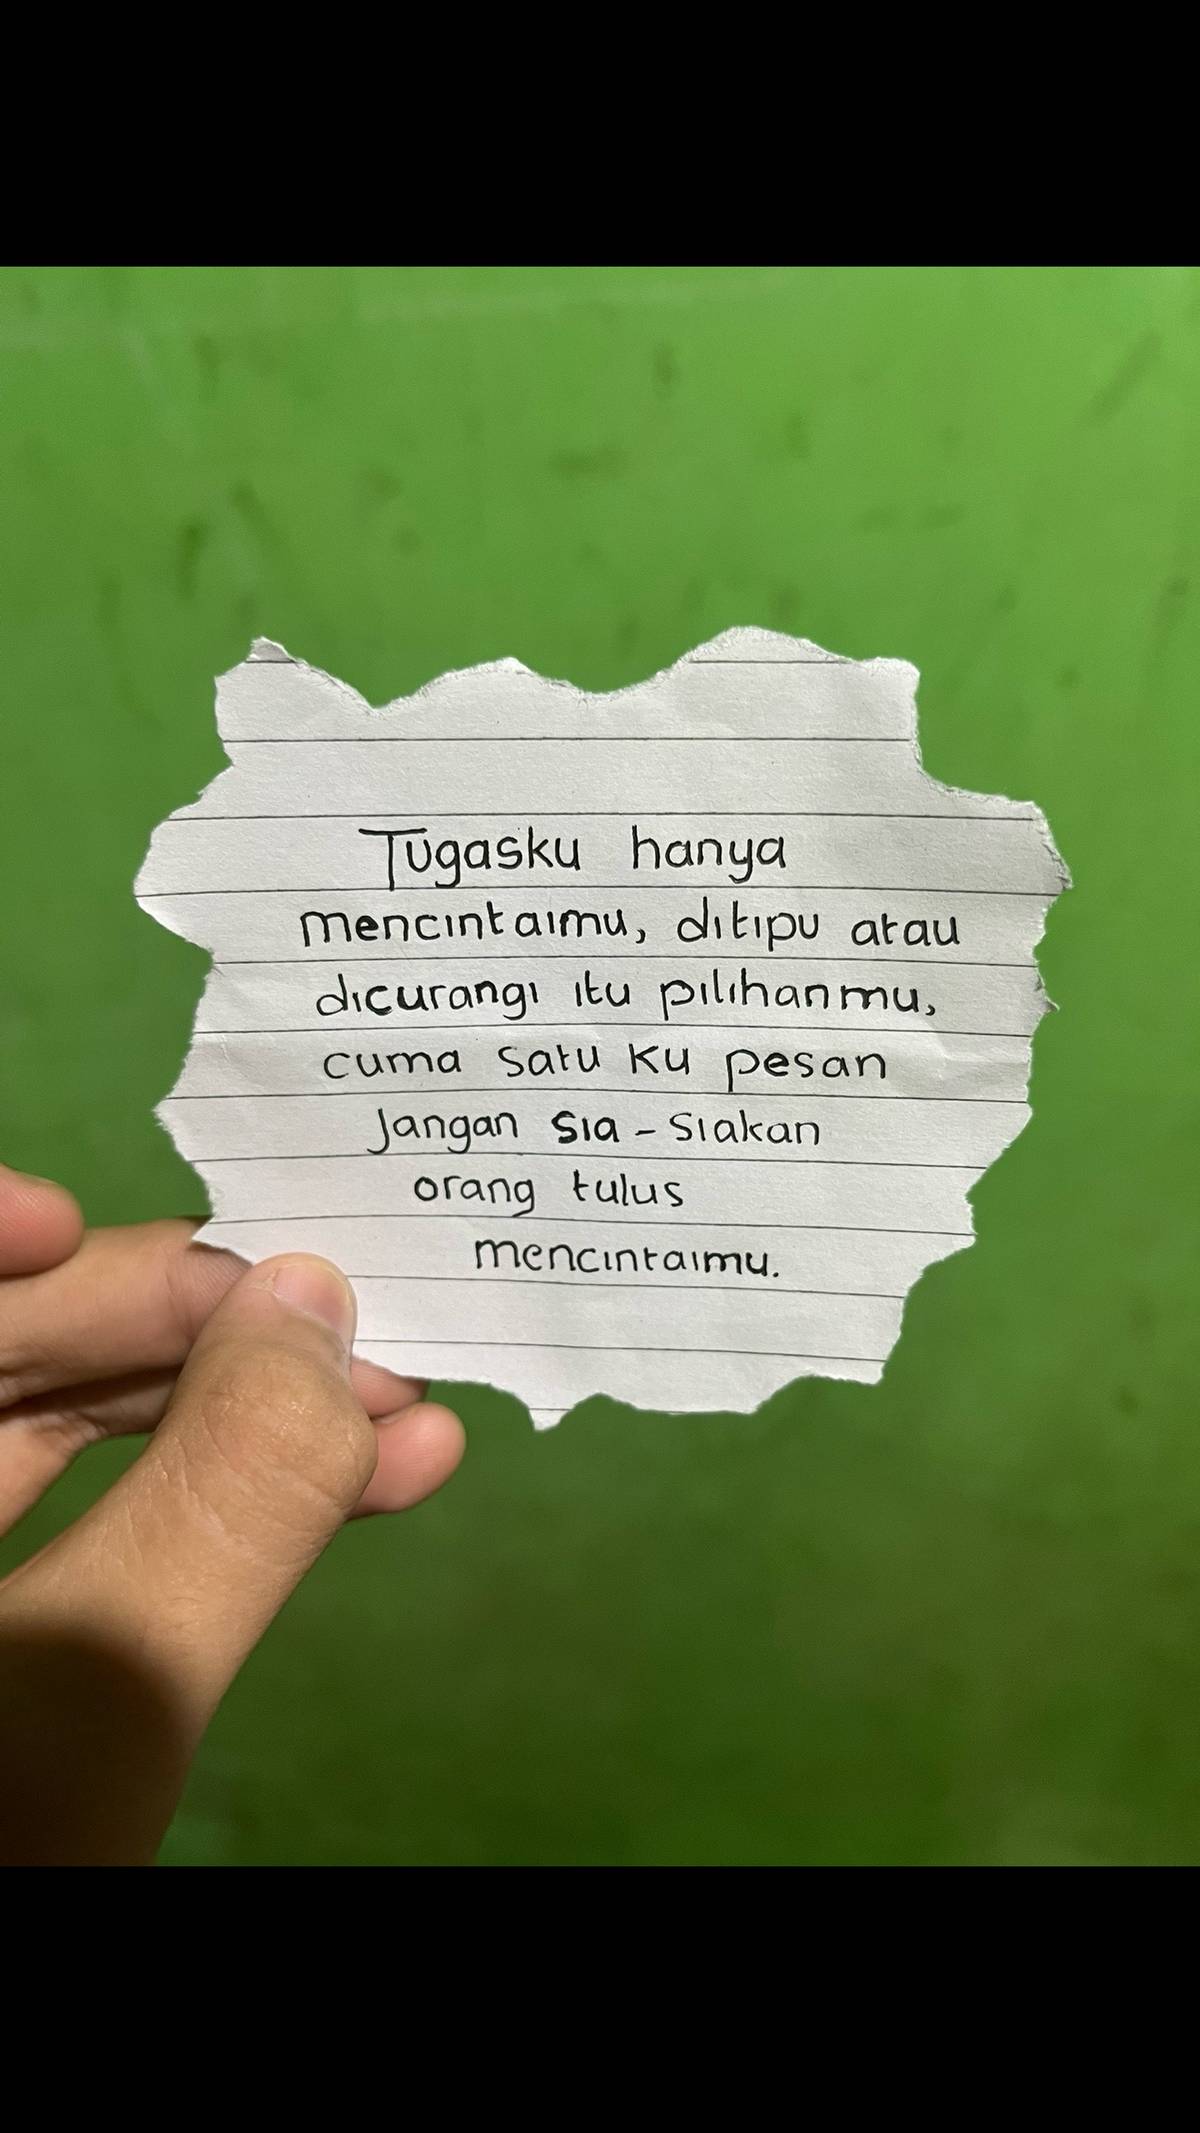 Tugasku hanya
mencintaimu, ditipu atau
dicurangi itu pilihanmu,
cuma satu ku pesan
Jangan sia-siakan
orang tulus
mencintaimu.